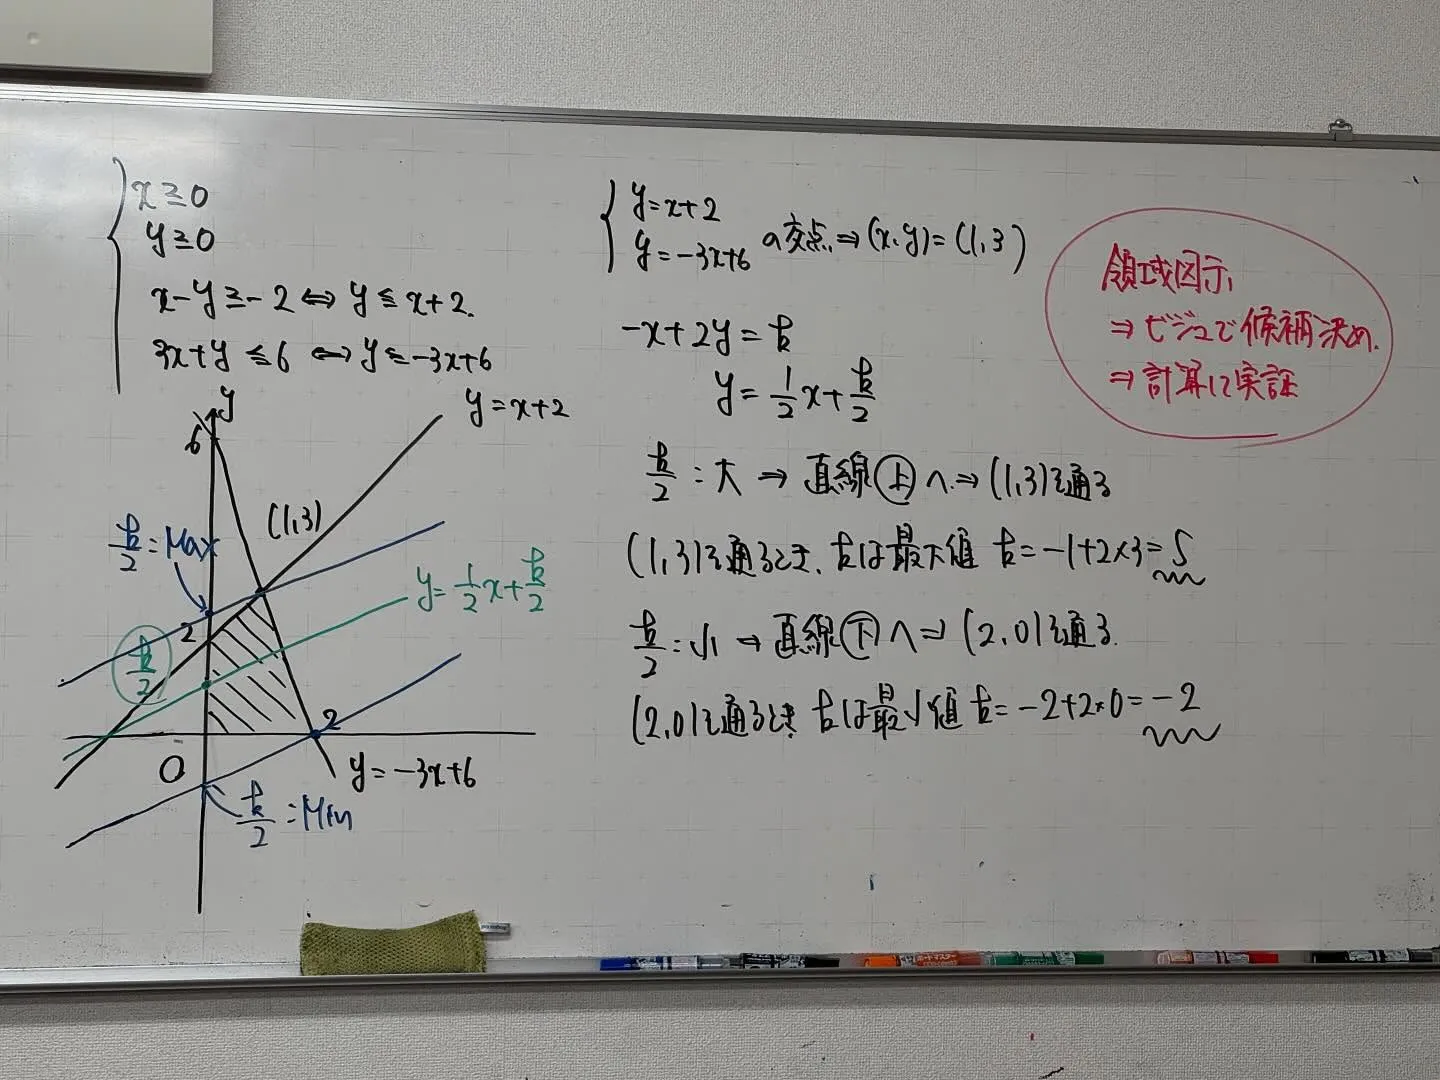 x≧0
y≧0
x-y≧-2 ⇔ y≦x+2.
3x+y≦6 ⇔ y≦-3x+6
y
6
y=x+2
(1,3)
k/2:Max
y=1/2x+k/2
2
k/2
2
O
y=-3x+6
k/2:Min
y=x+2
y=-3x+6
の交点⇒(x,y)=(1,3)
-x+2y=k
y=1/2x+k/2
k/2:大⇒直線上へ⇒(1,3)を通る
(1,3)を通るとき、kは最大値 k=-1+2×3=5
k/2:小⇒直線下へ⇒(2,0)を通る.
(2,0)を通るとき kは最小値 k=-2+2×0=-2
領域図示
⇒ビジュで候補決め.
⇒計算に実証
ボードマスター